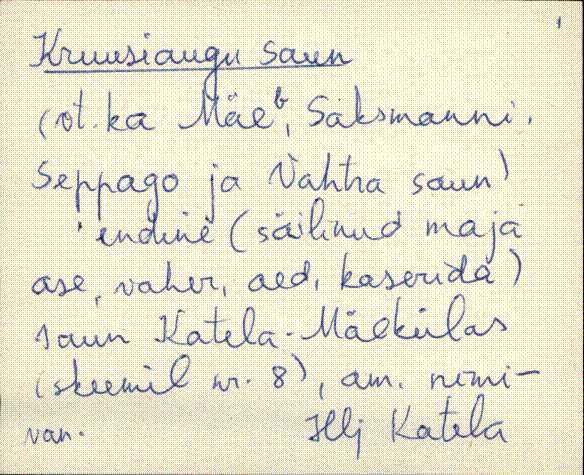 1
Kruusiaugu saun
(vt. ka Mäe b, Saksmanni,
Seppago ja Vahtra saun)
endine (säilinud maja
ase, vaher, aed, kaserida)
saun Katela-Mäekülas
(skeemil nr. 8), am. nimi-
van. Hlj Katela